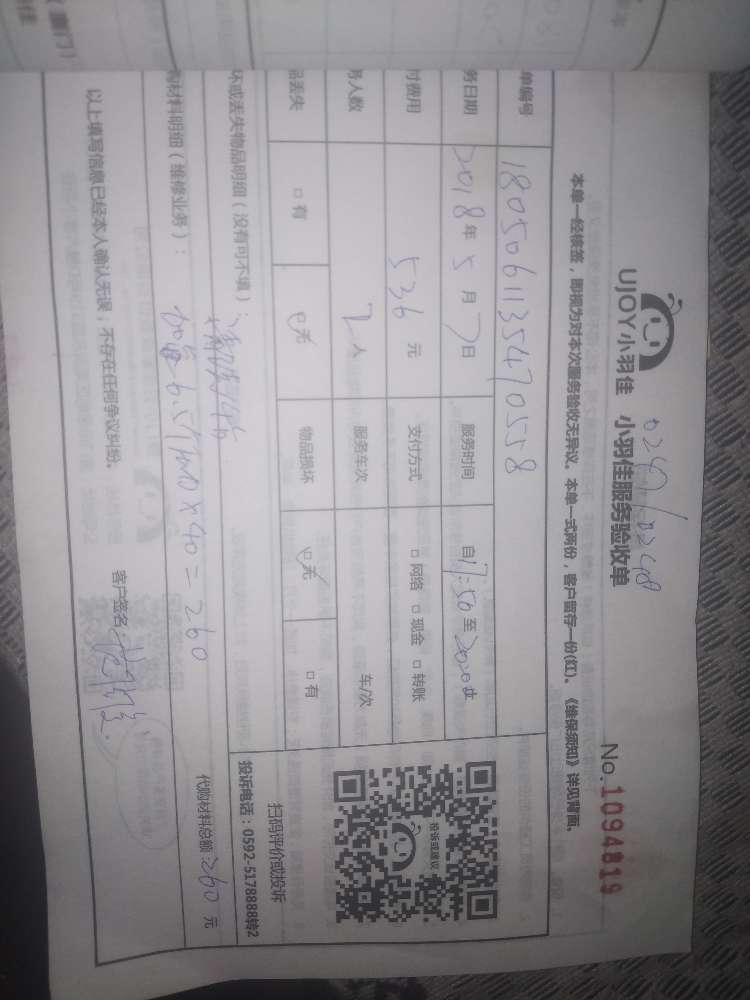 0249/0248
UJOY小羽佳 小羽佳服务验收单
No.1094819
本单一经核签，即视为对本次服务验收无异议。本单一式两份，客户留存一份(红)。《维保须知》详见背面。
单编号 1805061135470558
务日期 2018年5月7日 服务时间 自17:50至20:00止
付费用 536元 支付方式 □网络 □现金 □转账
务人数 2人 服务车次 车/次
品丢失 □有 ☑无 物品损坏 ☑无 □有
坏或丢失物品明细（没有可不填）：
购材料明细（维修业务）：
6.5/ × 40 = 260
代购材料总额：260元
以上填写信息已经本人确认无误；不存在任何争议纠纷。
客户签名
投诉或建议
扫码评价或投诉
投诉电话：0592-5178888转2